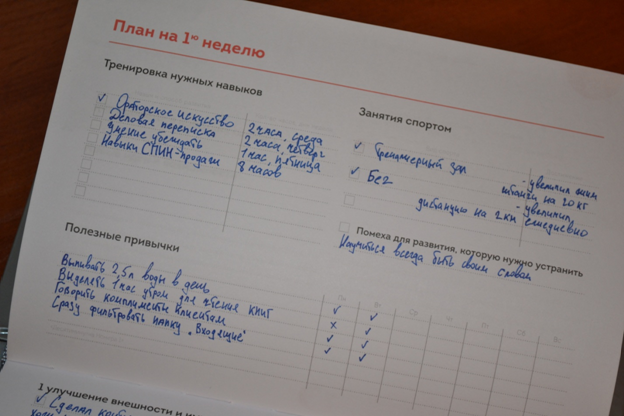 План на 1ю неделю
Тренировка нужных навыков
✓ Ораторское искусство 2 часа, среда
Деловая переписка 2 часа, четверг
Умение убеждать 1 час, пятница
Навыки СПИН-продаж 8 часов
Занятия спортом
✓ Тренажерный зал - увеличил жим
штанги на 20 кг
✓ Бег - увеличил
дистанцию на 2 км ежедневно
Помеха для развития, которую нужно устранить
Научиться всегда быть своим словам
Полезные привычки
Выпивать 2,5 л воды в день ✓ ✓
Выделять 1 час утром для чтения книг х ✓
Говорить комплименты клиентам ✓ ✓
Сразу фильтровать папку „Входящие" ✓ ✓
1 улучшение внешности и
✓ Сделал